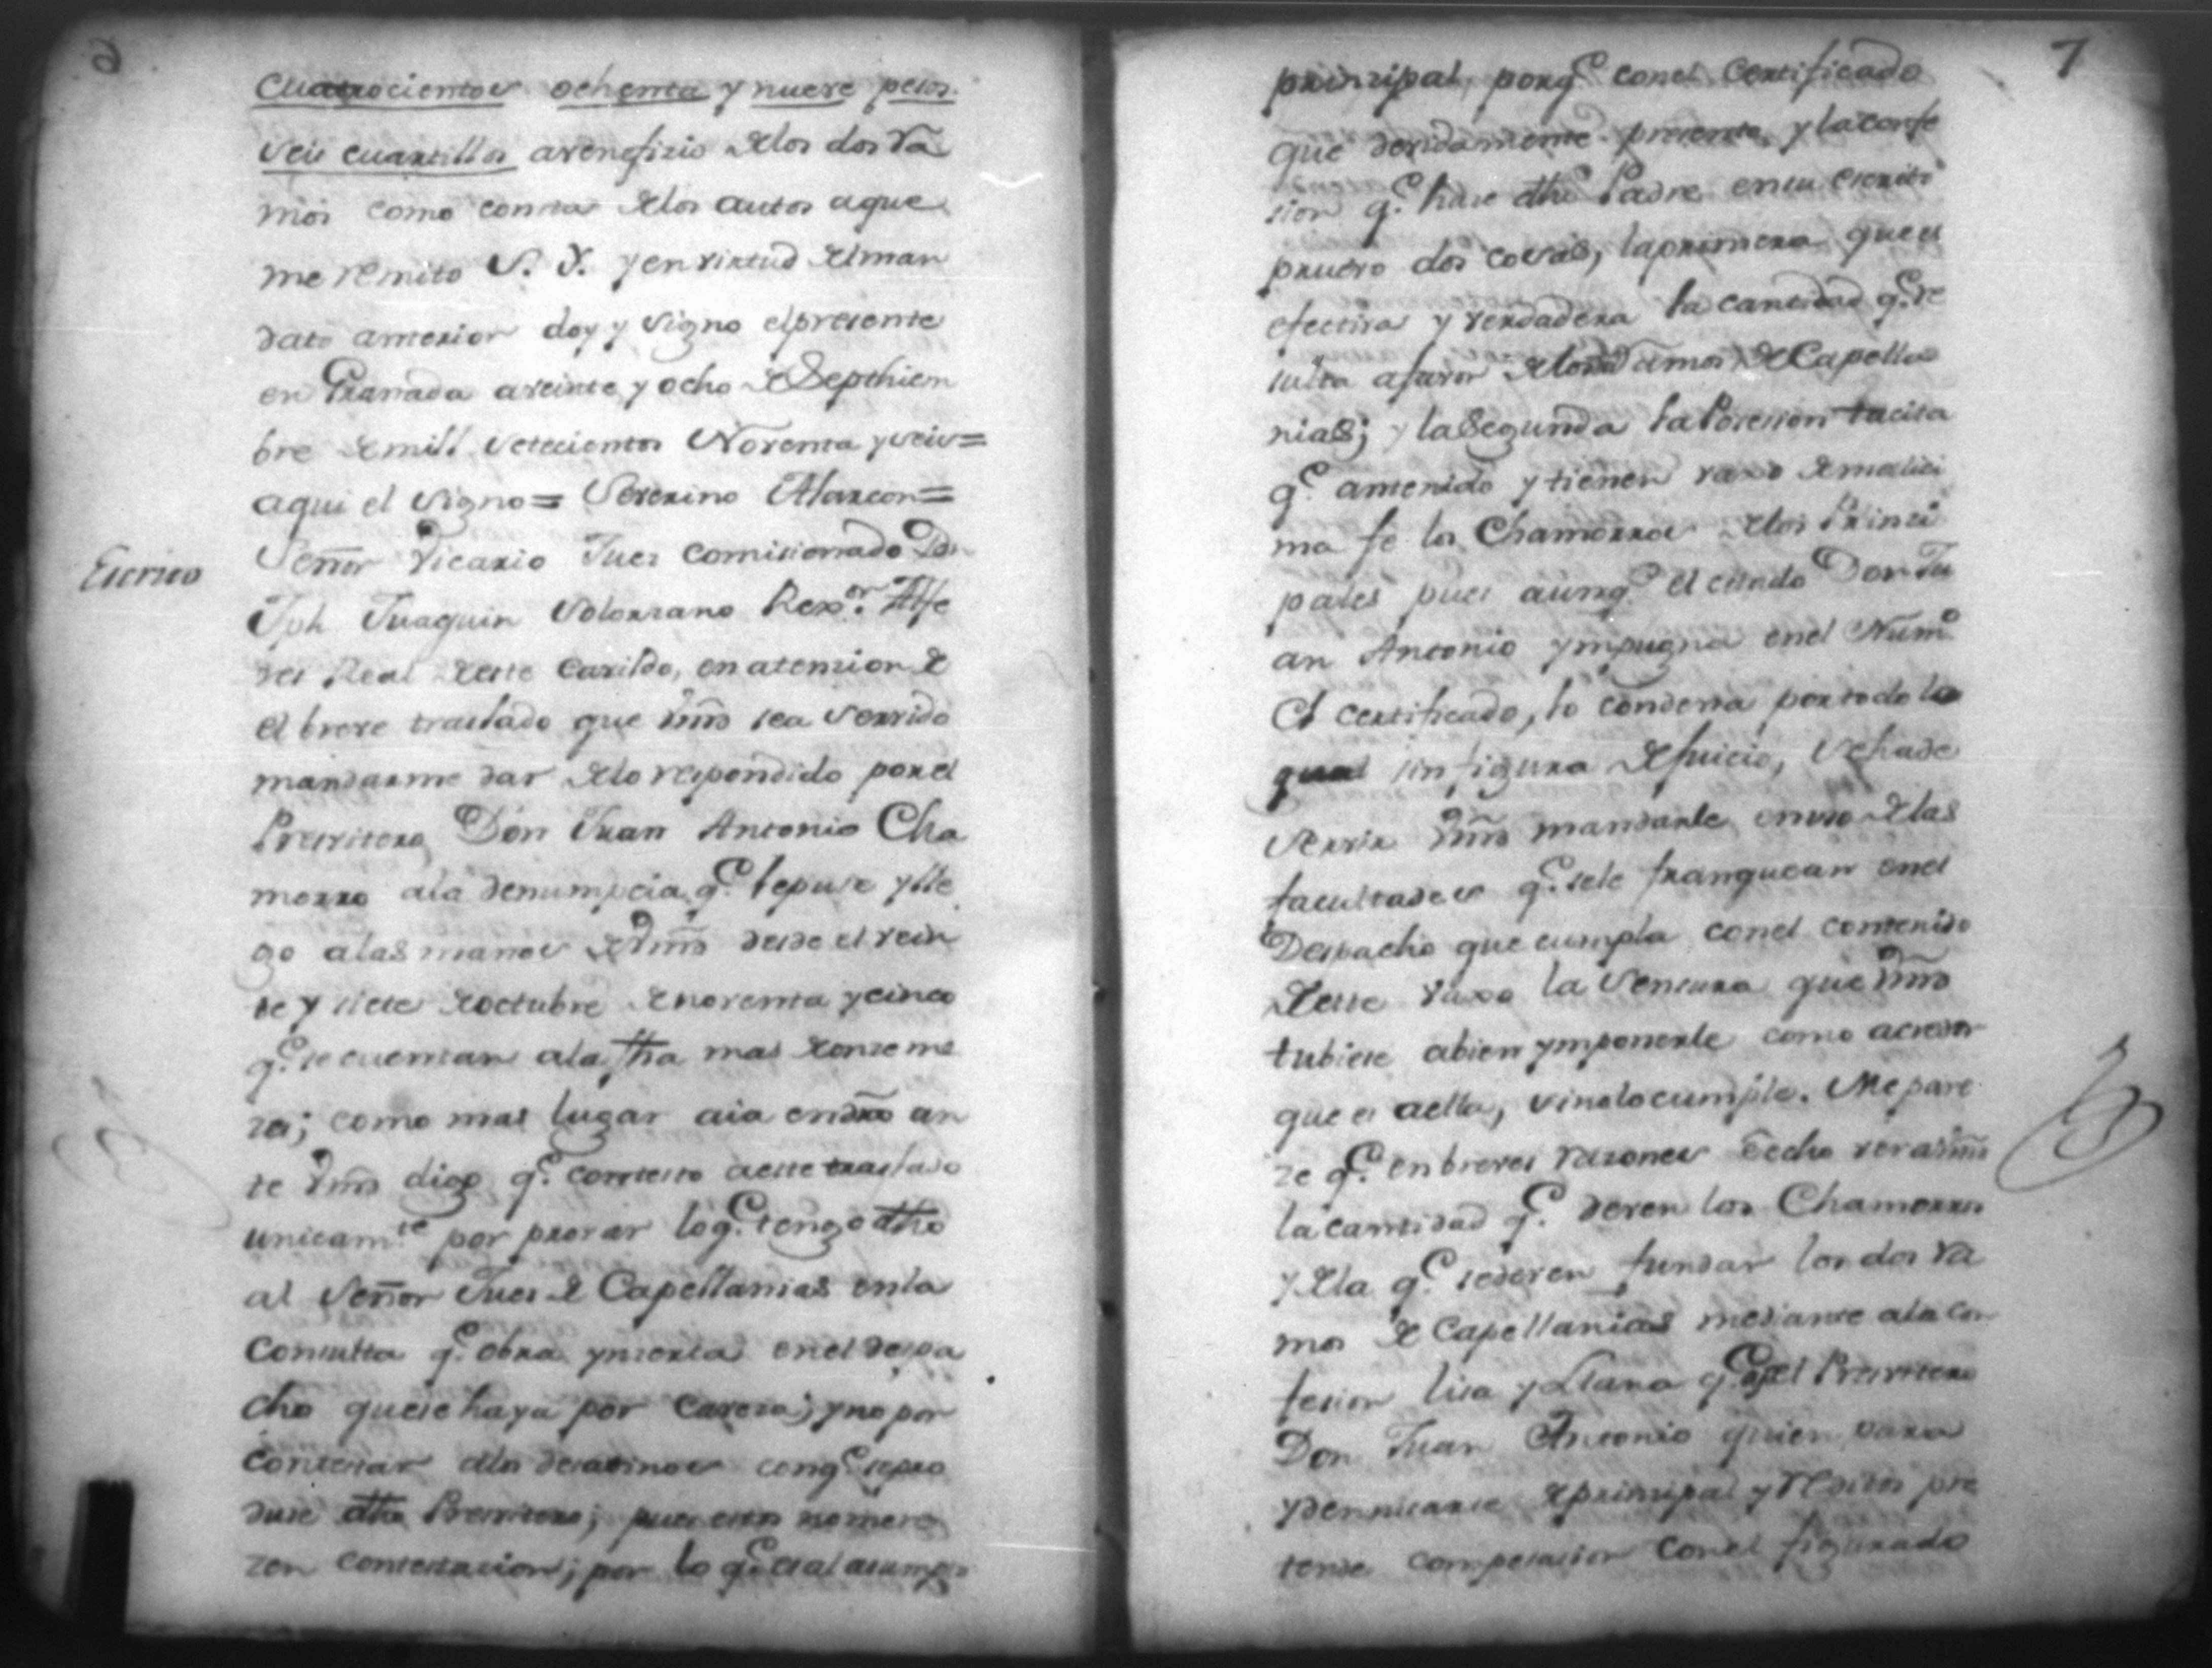 6
Cuatrocientos ochenta y nueve pesos
seis cuartillos a veneficio de los dos Ra
mos como consta de los autos aque
me remito S. Y. y en virtud del man
dato anterior doy y signo el presente
en Granada a veinte y ocho de Septhiem
bre de mill setecientos Noventa y seis=
aqui el signo= Severino Alarcon=
Escrito
Señor Vicario Jues comisionado Don
Jph Juaquin Solorzano Rexor. Alfe
res Real de este Cavildo, en atenzion de
el breve traslado que Vmd sea servido
mandarme dar de lo respondido por el
Presvitero Don Juan Antonio Cha
morro ala denumpcia q.e lepuse y lle
go alas manos de Vmd desde el vein
te y siete de octubre de noventa y cinco
q.e se cuentan ala fha mas de onze me
zes; como mas lugar aia en dro an
te Vmd digo q.e contesto a este traslado
unicam.te por provar lo q.e tengo dho
al Señor Jues de Capellanias en la
Consulta q.e obra ynserta en el despa
cho que se haya por Caveza; y no por
contestar alos desatinos con q.e se pro
duse dho Presvitero; pues estos no mere
zen contestacion; por lo q.e es al asumpto
7
prinzipal, porq.e con el Certificado
que devidamente presento, y la confe
sion q.e hase dho Padre en su escrito
pruevo dos cosas, la primera que es
efectiva y verdadera la cantidad q.e re
sulta a favor de los Ramos de Capella
nias; y la Segunda la Posesion tacita
q.e an tenido y tienen vaxo de malici
ma fe los Chamorros de los Prinzi
pales pues aunq.e el citado Don Ju
an Antonio ympugna en el Num.o
el certificado, lo condena por todo lo
qual sin figura de juicio, se hade
servir Vmd mandarle en uso de las
facultades q.e sele franquean en el
Despacho que cumpla con el contenido
de este vaxo la Sensura que Vmd
tubiese abien ymponerle como acredor
que es aella, sino lo cumple. Me pare
ze q.e en breves razones e echo ver a Vmd
la cantidad q.e deven los Chamorros
y de la q.e se deven fundar los dos Ra
mos de Capellanias mediante ala con
fesion lisa y Llana q.e ase el Presvitero
Don Juan Antonio quien para
ydennisarse de prinsipal y reditos pre
tende compensasion con el figurado